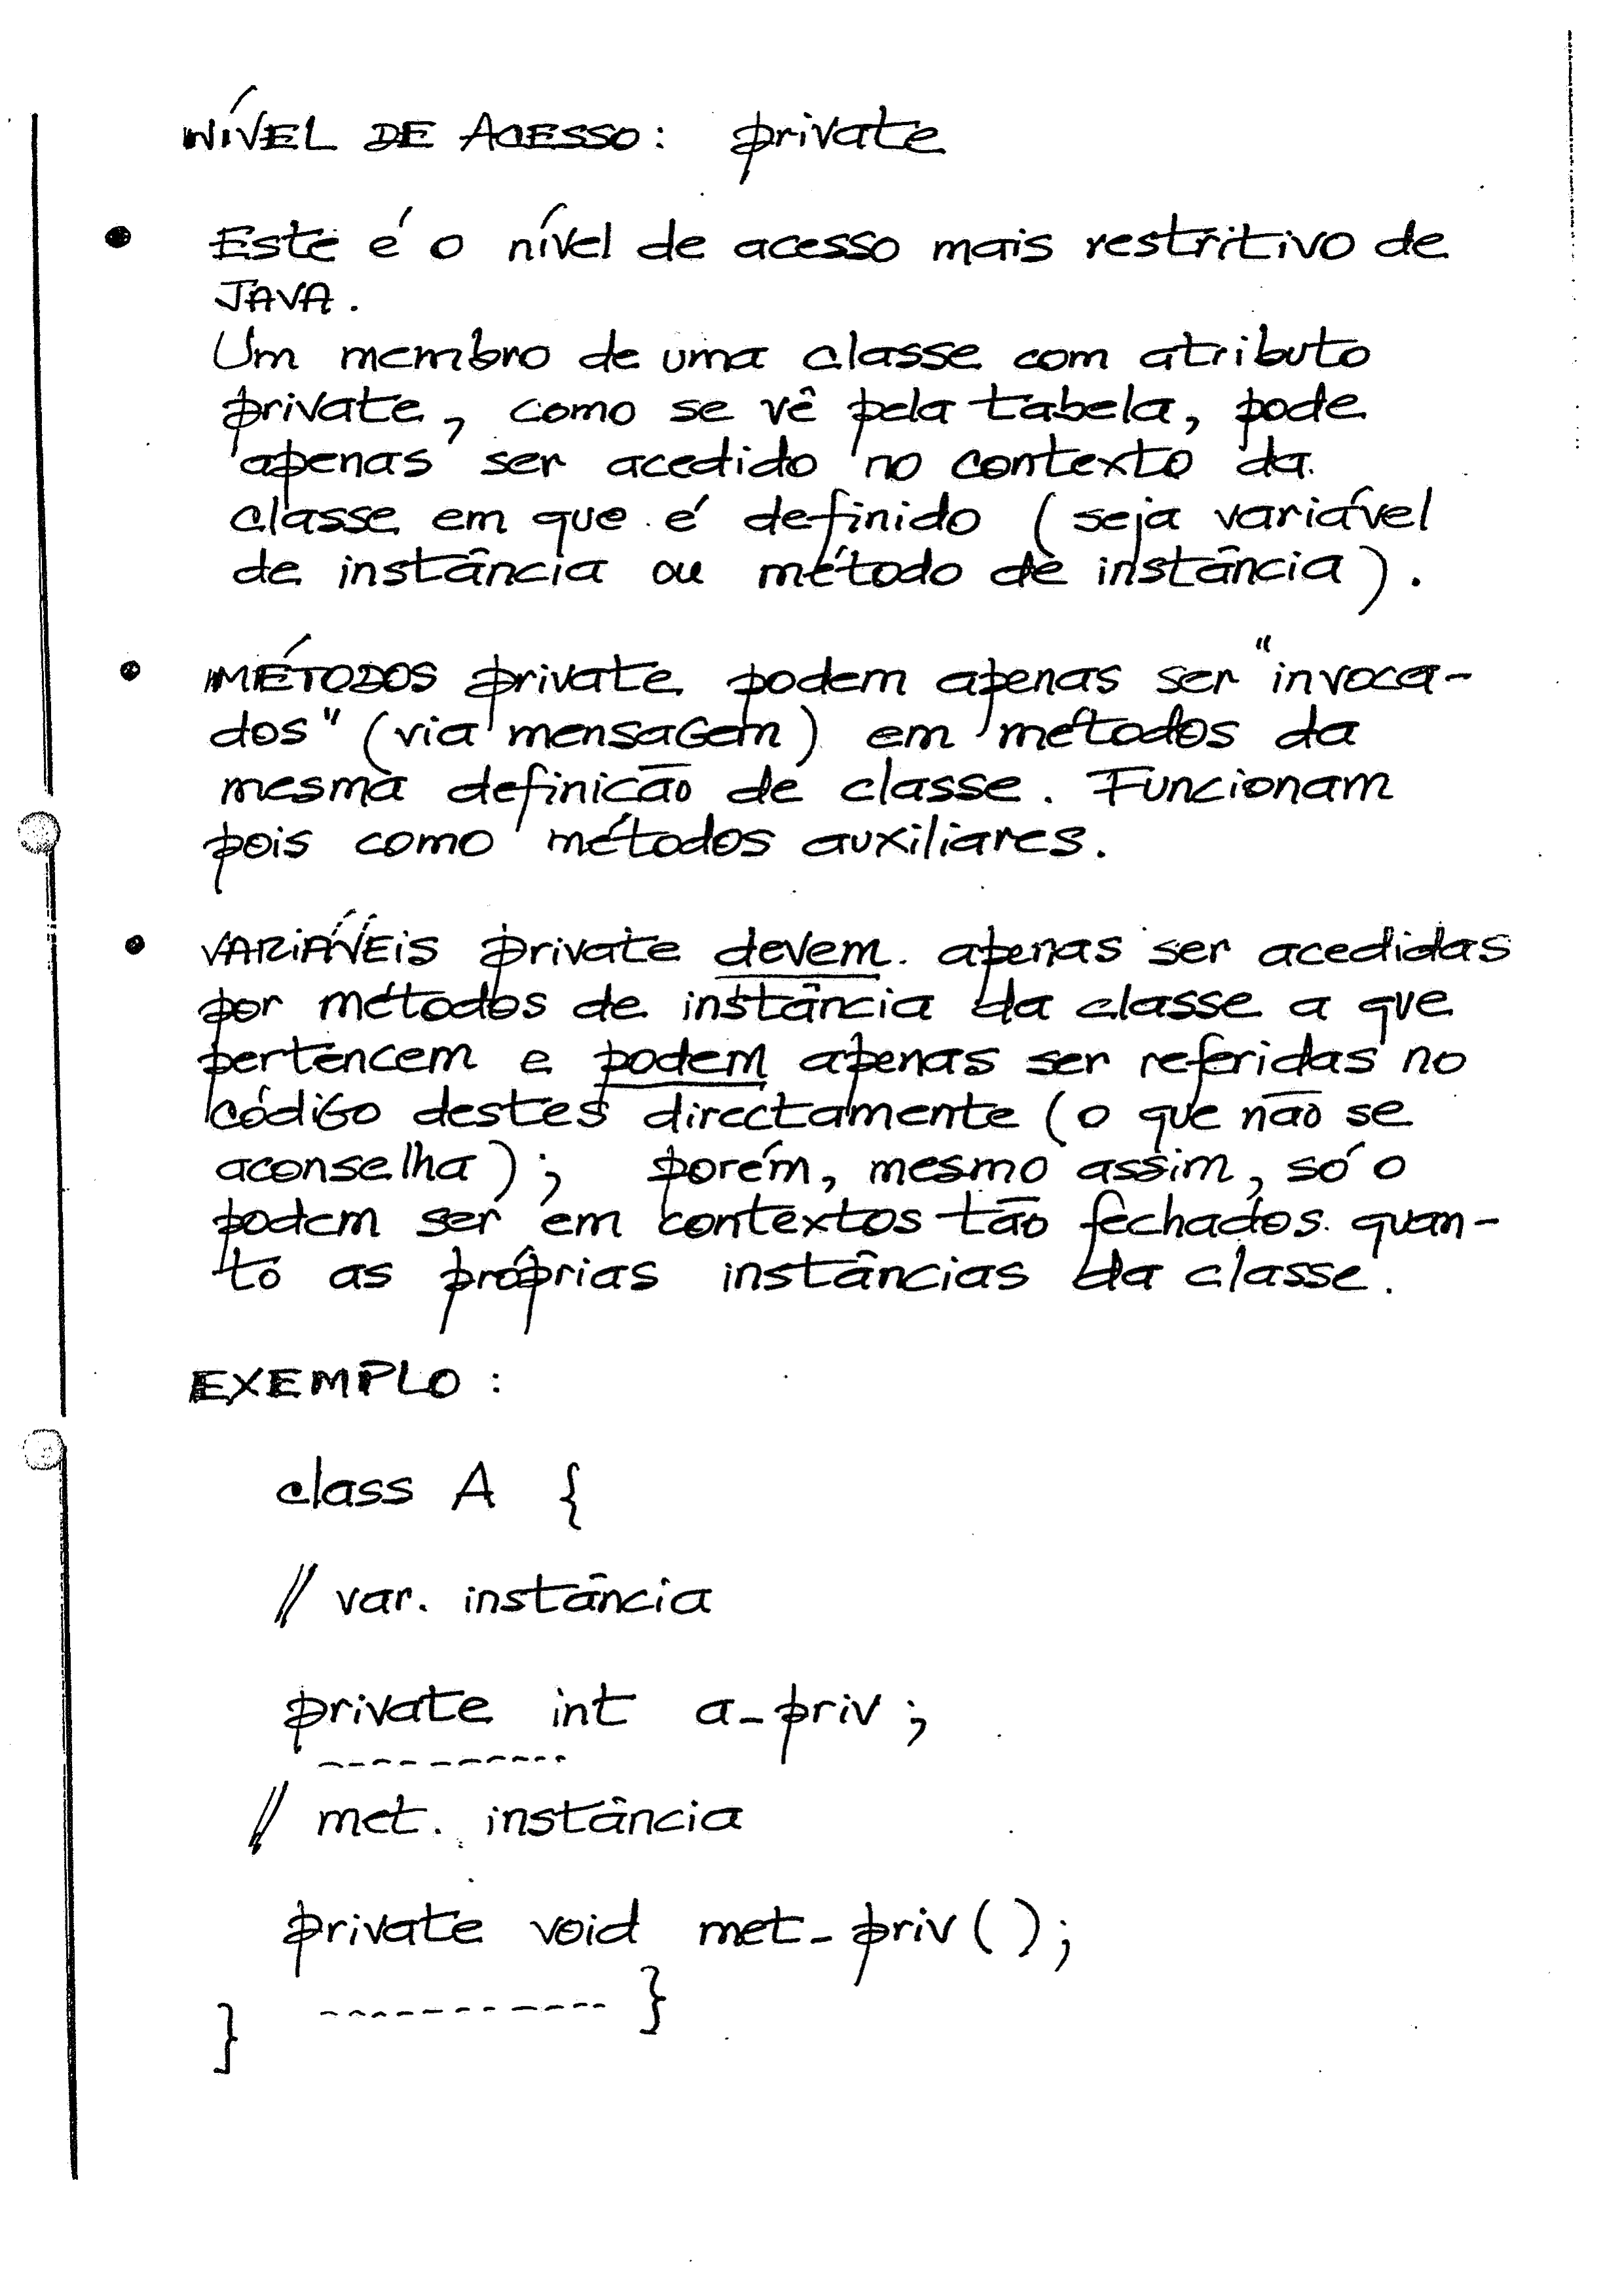 NÍVEL DE ACESSO: private
• Este é o nível de acesso mais restritivo de
JAVA.
Um membro de uma classe com atributo
private, como se vê pela tabela, pode
apenas ser acedido no contexto da
classe em que é definido (seja variável
de instância ou método de instância).
• MÉTODOS private podem apenas ser "invoca-
dos" (via mensagem) em métodos da
mesma definicão de classe. Funcionam
pois como métodos auxiliares.
• VARIÁVEIS private devem apenas ser acedidas
por métodos de instância da classe a que
pertencem e podem apenas ser referidas no
código destes directamente (o que não se
aconselha); porém, mesmo assim, só o
podem ser em contextos tão fechados quan-
to as próprias instâncias da classe.
EXEMPLO:
class A {
// var. instância
private int a_priv;
----------
// met. instância
private void met_priv();
------------ }
}